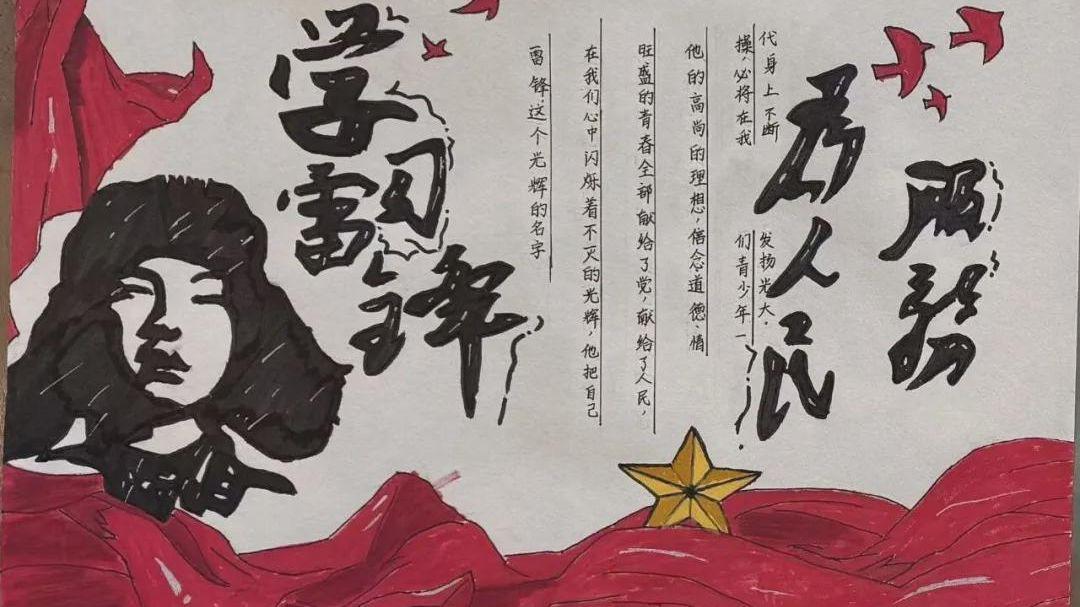 学习
雷锋
雷锋,这个光辉的名字
在我们心中闪烁着不灭的光辉,他把自己
旺盛的青春全部献给了党,献给了人民,
他的高尚的理想,信念道德、情
操,必将在我们青少年一
代身上不断发扬光大.
为人民
服务